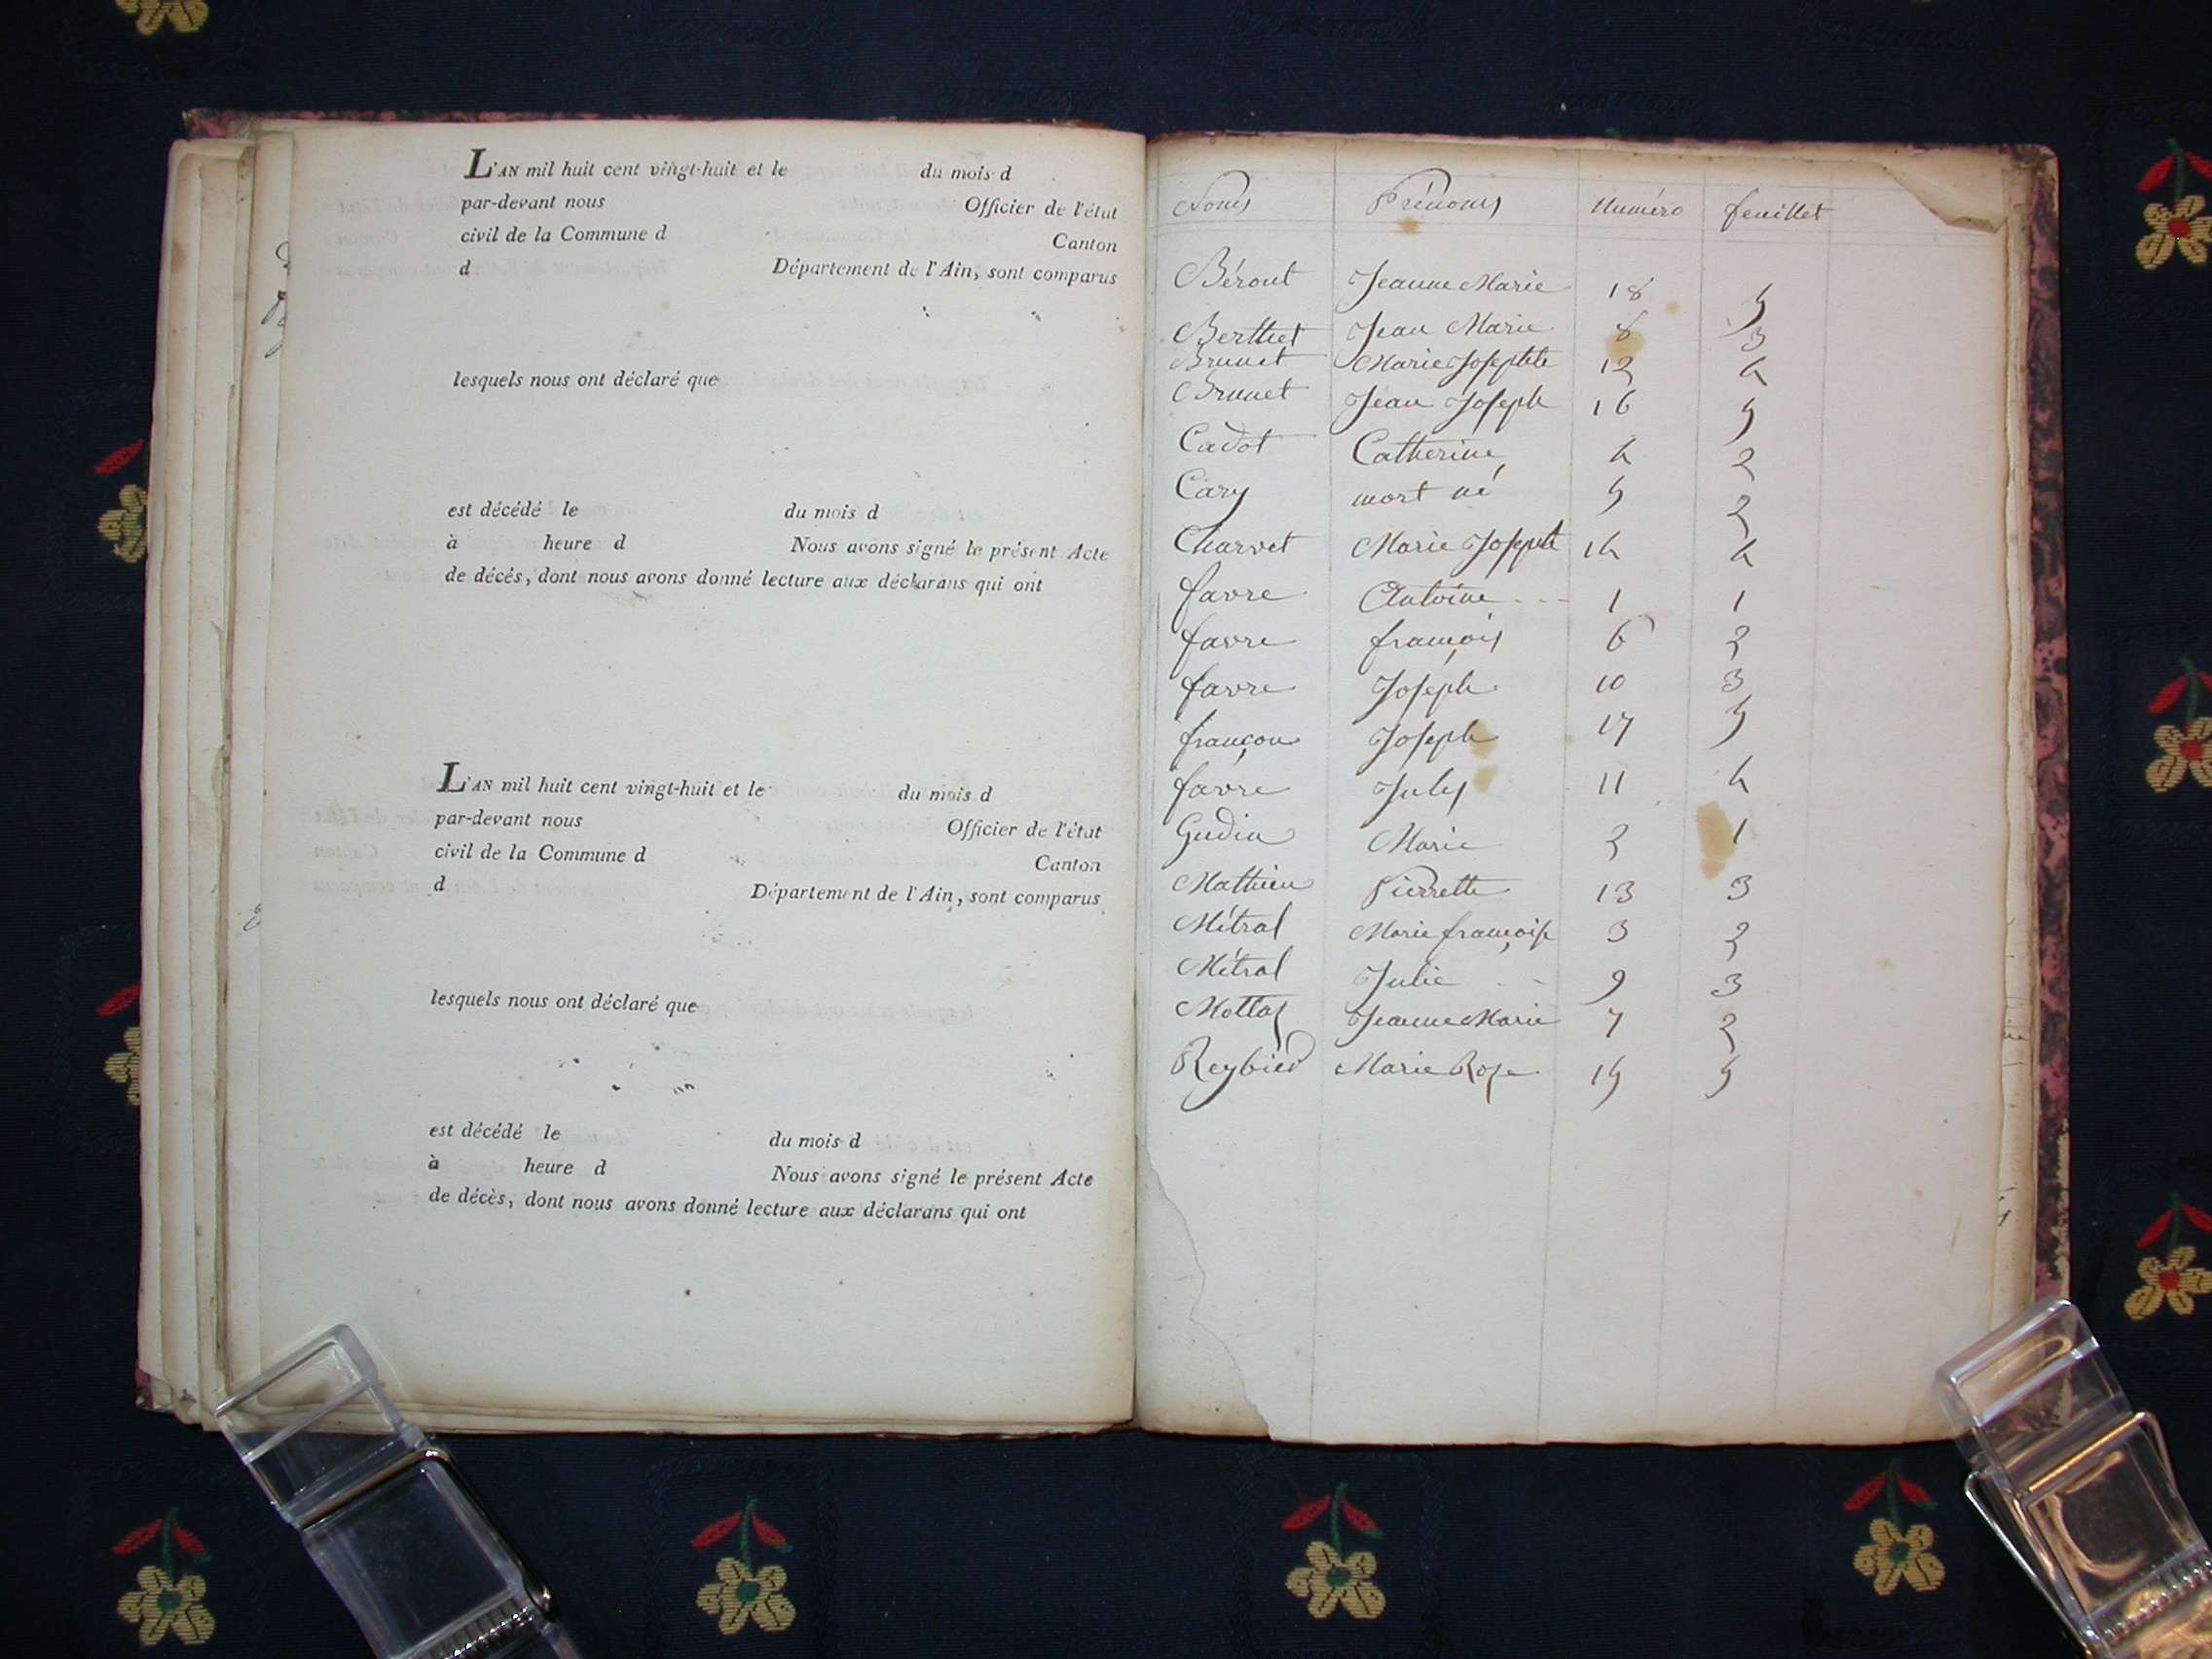 L'AN mil huit cent vingt-huit et le du mois d
par-devant nous Officier de l'état
civil de la Commune d Canton
d Département de l'Ain, sont comparus
lesquels nous ont déclaré que
est décédé le du mois d
à heure d Nous avons signé le présent Acte
de décés, dont nous avons donné lecture aux déclarans qui ont
L'AN mil huit cent vingt-huit et le du mois d
par-devant nous Officier de l'état
civil de la Commune d Canton
d Département de l'Ain, sont comparus
lesquels nous ont déclaré que
est décédé le du mois d
à heure d Nous avons signé le présent Acte
de décès, dont nous avons donné lecture aux déclarans qui ont
Noms Prénoms Numéro feuillet
Bérout Jeanne Marie 18 5
Berthet Jean Marie 8 3
Brunet Marie Josephte 12 4
Brunet Jean Joseph 16 5
Cadot Catherine 4 2
Cary mort né 5 2
Charvet Marie Josephte 14 4
favre Antoine 1 1
favre françois 6 2
favre Joseph 10 3
françon Joseph 17 5
favre July 11 4
Gudin Marie 2 1
Mathieu Pierrette 13 3
Métral Marie françoise 3 2
Métral Julie 9 3
Mottas Jeanne Marie 7 2
Reybier Marie Rose 15 5